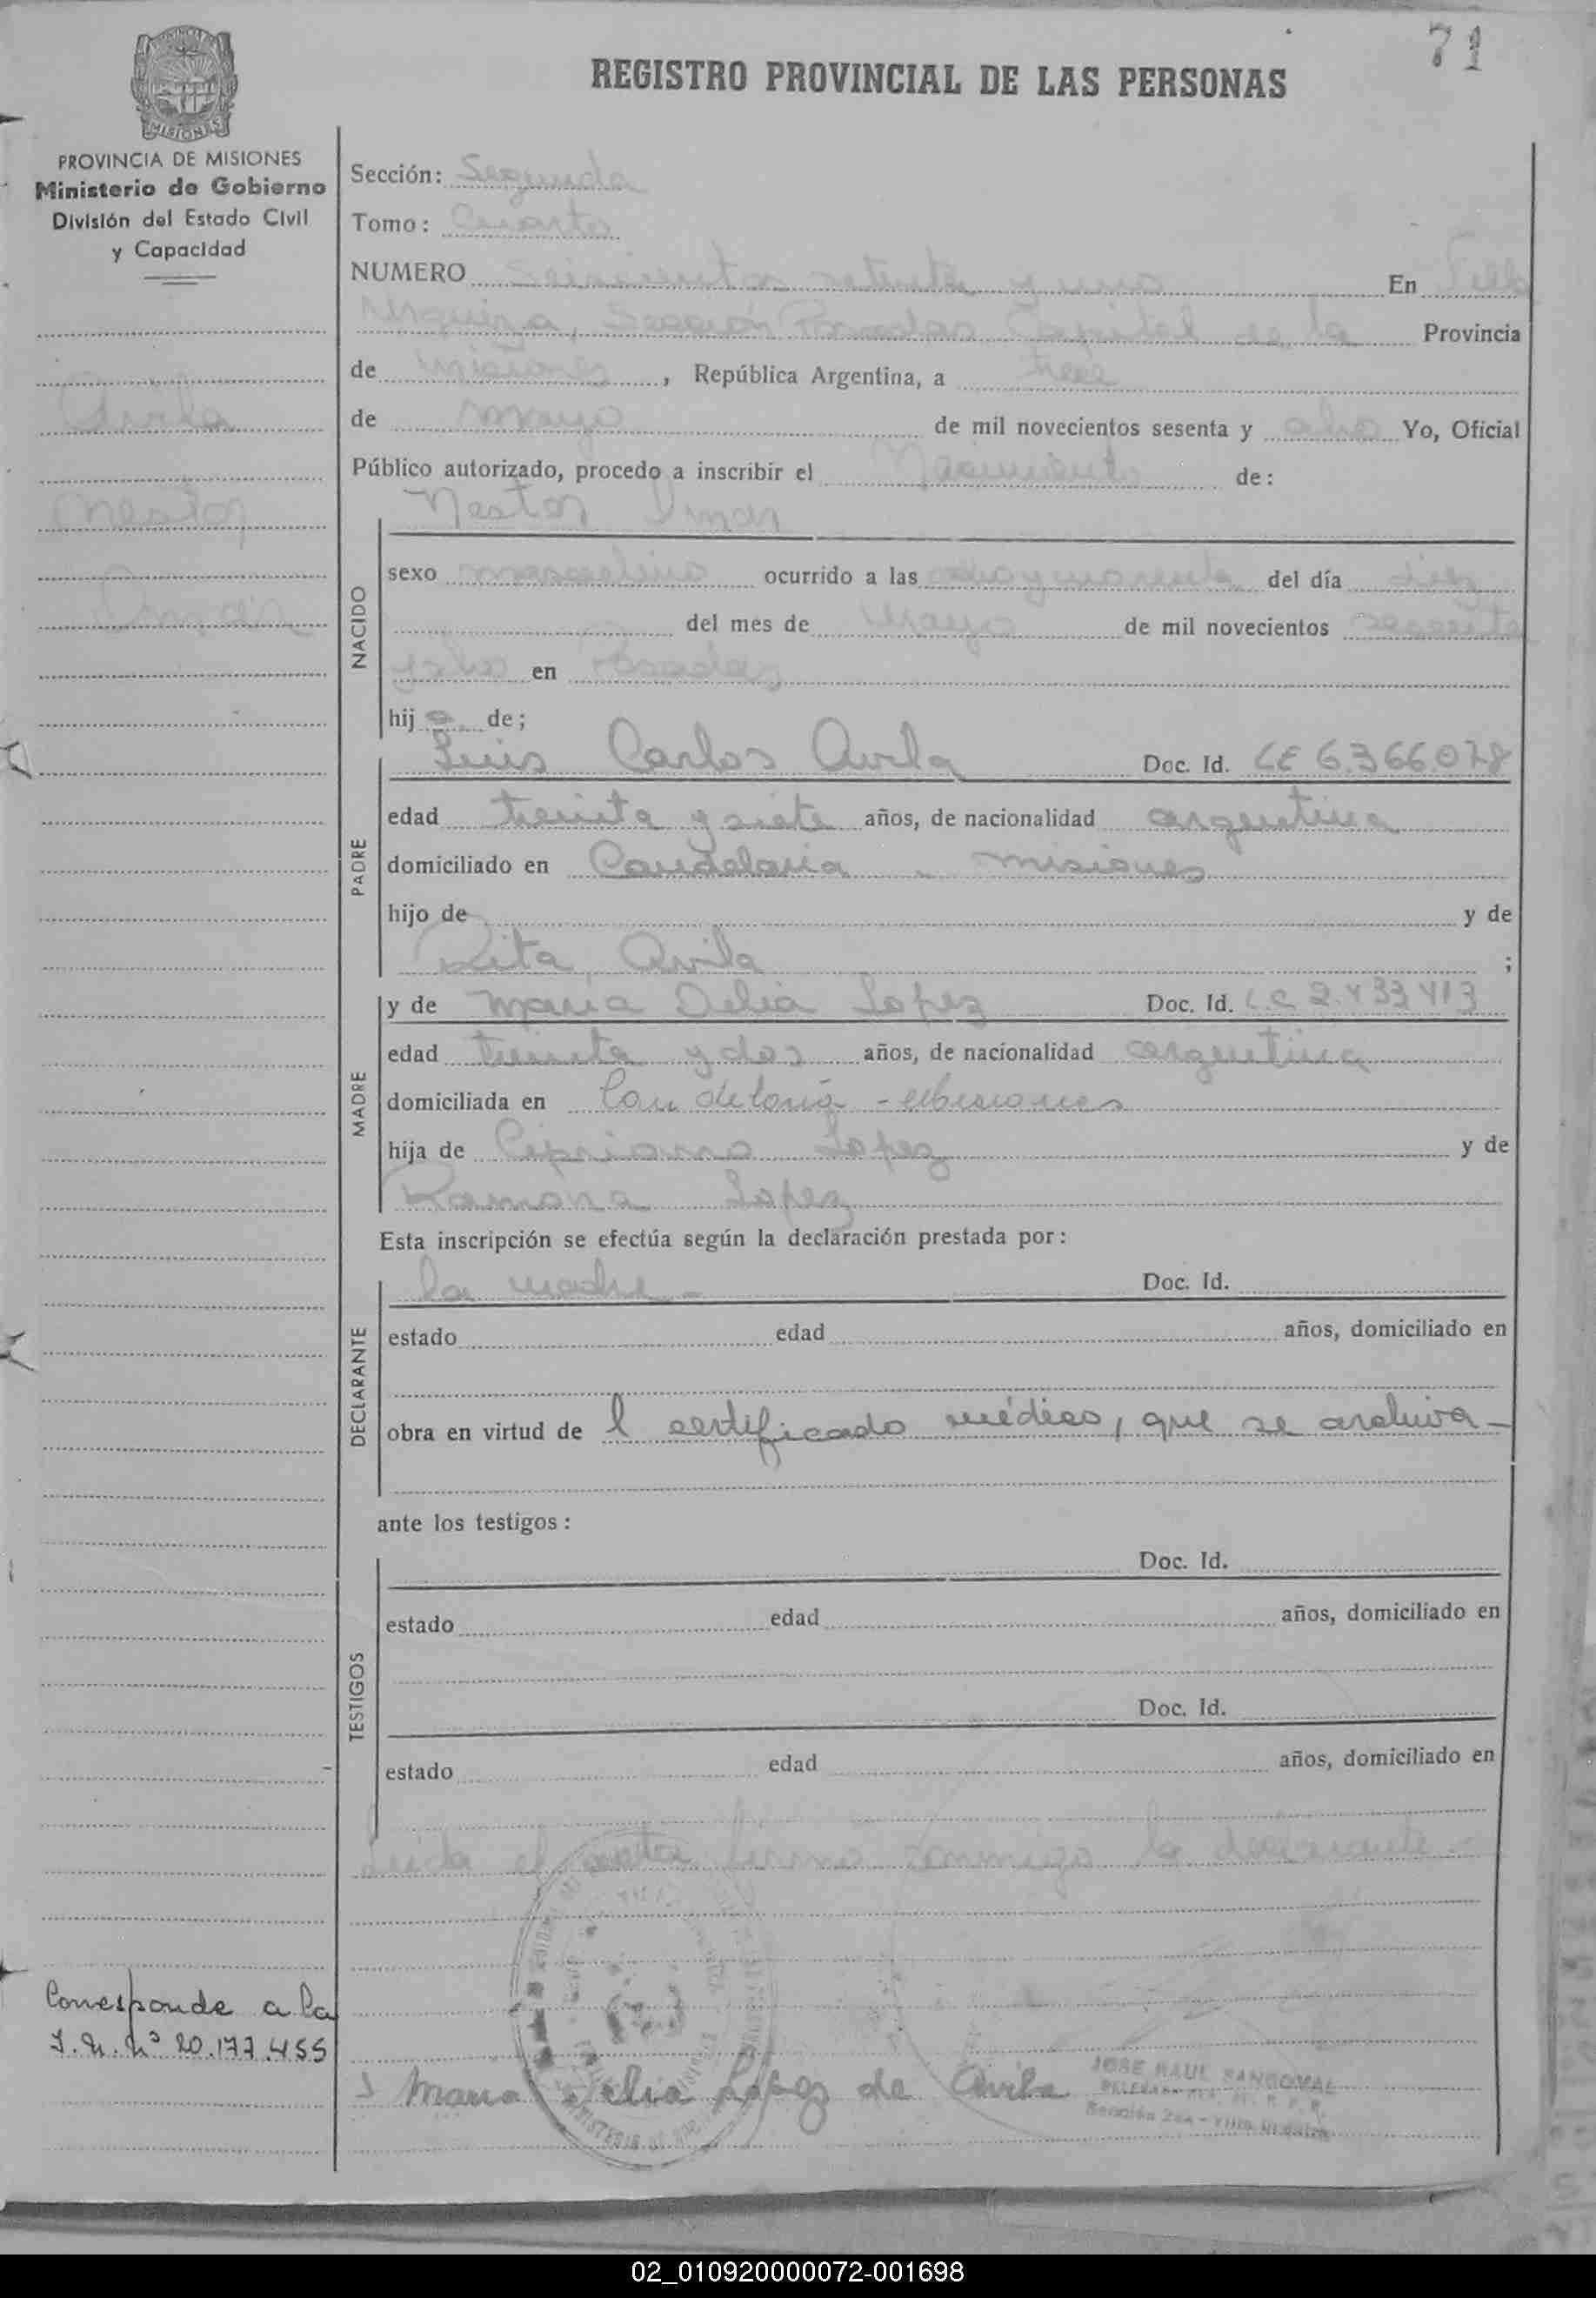 71
REGISTRO PROVINCIAL DE LAS PERSONAS
MISIONES
PROVINCIA DE MISIONES
Ministerio de Gobierno
División del Estado Civil
y Capacidad
Avila
Nestor
Omar
Sección: Segunda
Tomo: Cuarto
NUMERO Seiscientos setenta y uno En Villa
Urquiza, Sección Posadas Capital de la Provincia
de Misiones, República Argentina, a trece
de mayo de mil novecientos sesenta y ocho Yo, Oficial
Público autorizado, procedo a inscribir el Nacimiento de:
NACIDO
Nestor Omar
sexo masculino ocurrido a las ocho y cuarenta del día diez
del mes de mayo de mil novecientos sesenta
y ocho en Posadas
hijo de;
PADRE
Luis Carlos Avila Doc. Id. LE 6.366.078
edad treinta y siete años, de nacionalidad argentina
domiciliado en Candelaria - misiones
hijo de y de
Rita Avila ;
MADRE
y de Maria Delia Lopez Doc. Id. L.C 2.433.413
edad treinta y dos años, de nacionalidad argentina
domiciliada en Candelaria - Misiones
hija de Cipriano Lopez y de
Ramona Lopez
Esta inscripción se efectúa según la declaración prestada por:
DECLARANTE
la madre - Doc. Id.
estado edad años, domiciliado en
obra en virtud de l certificado médico, que se archiva -
ante los testigos:
TESTIGOS
Doc. Id.
estado edad años, domiciliado en
Doc. Id.
estado edad años, domiciliado en
Leida el acta firma conmigo la declarante -
Corresponde a la
I.N. Nº 20.177.455
Maria Delia Lopez de Avila
JOSE RAUL SANDOVAL
Sección 2da - Villa Urquiza
02_010920000072-001698